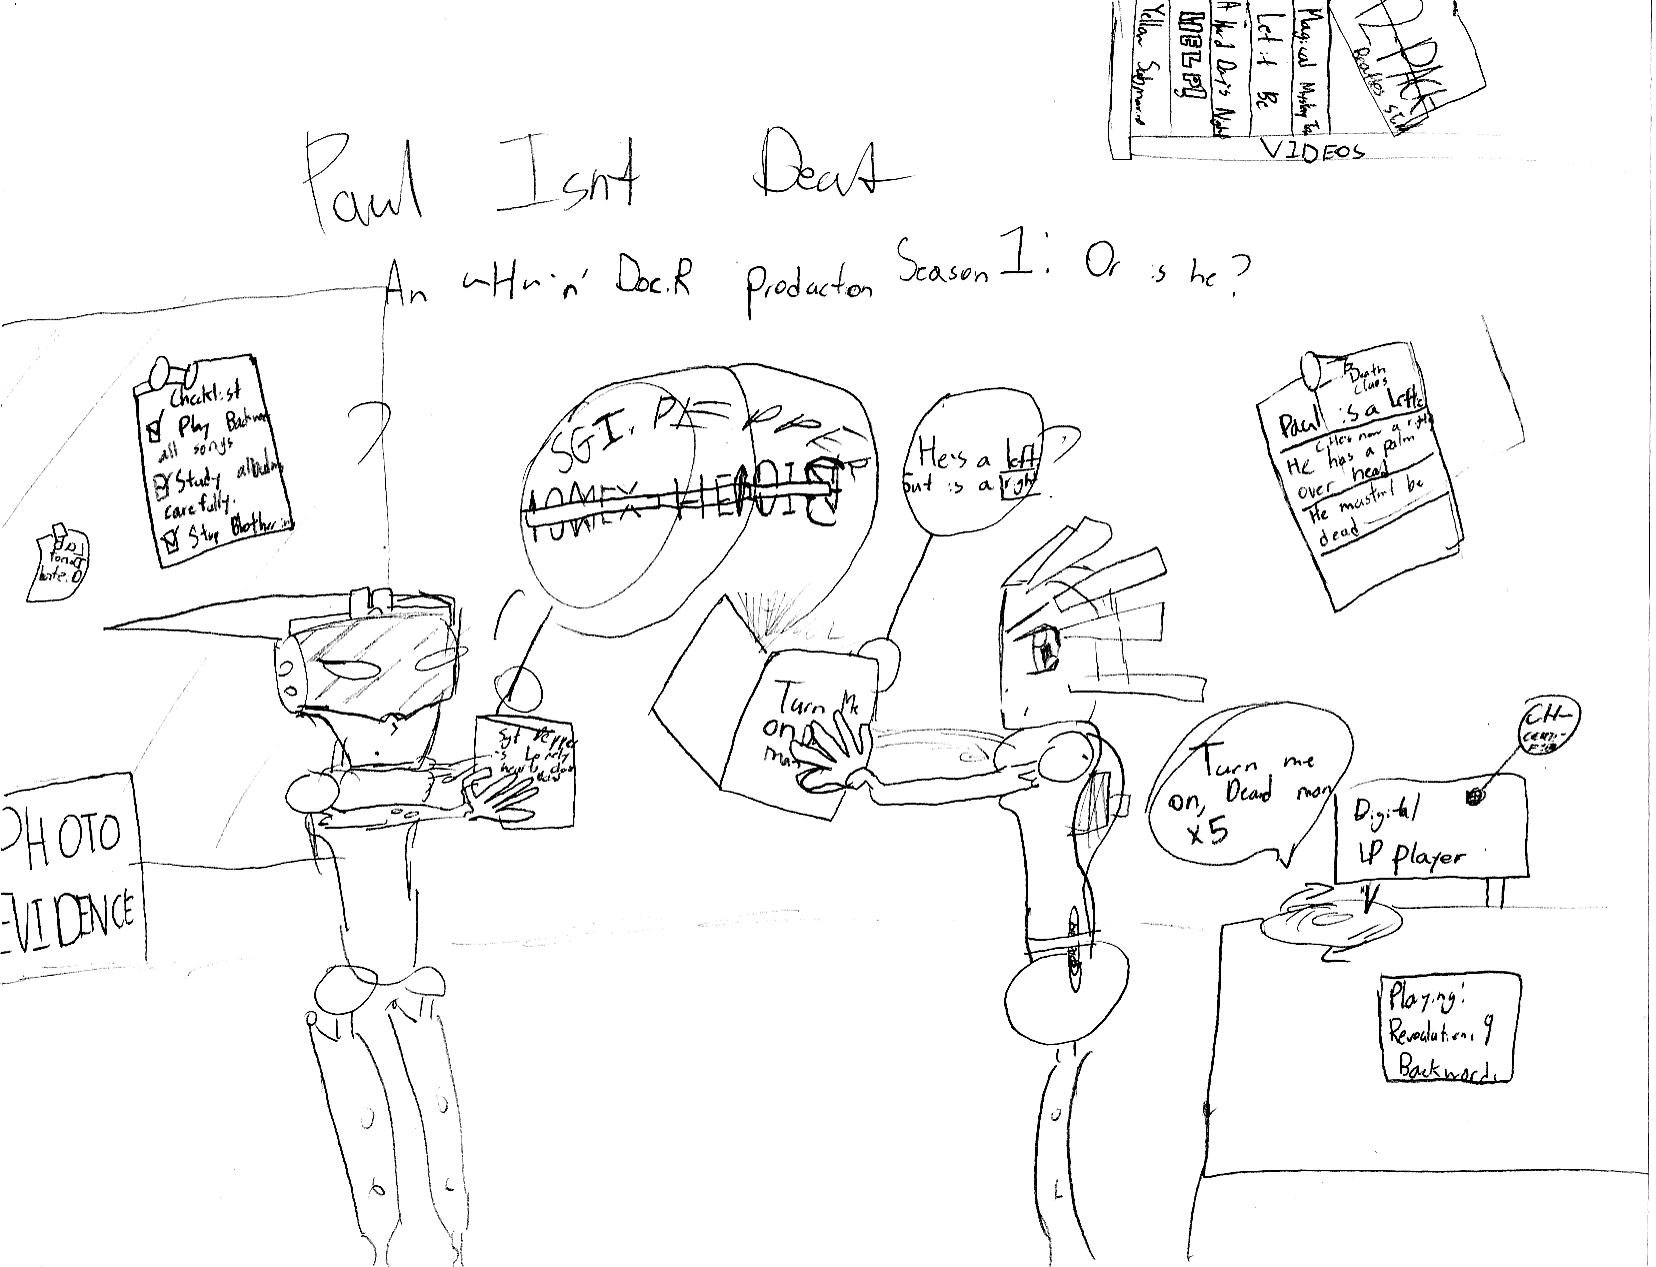 Yellow Submarine
HELP!
A Hard Day's Night
Let it Be
Magical Mystery Tour
2-PACK
Beatles
VIDEOS
Paul Isnt Dead
An Doc.R Production Season 1: Or is he?
Checklist
Play Backwards
all songs
Study albums
carefully.
Stop
?
SGT. PEPPER
He's a left
but is a right
?
Death
Clues
Paul is a Lefty
He's now a righty
He has a palm
over head
He mustnt be
dead
Turn Me
on
man
Sgt Pepper
's Lonely
Turn me
on, Dead man
x5
Digital
LP player
PHOTO
EVIDENCE
Playing:
Revolution 9
Backwards